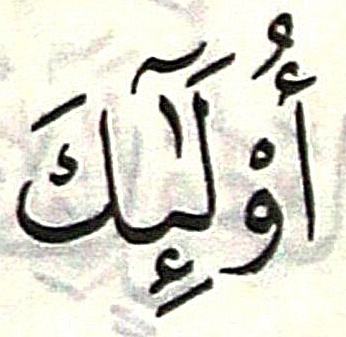 أُوْلَٰٓئِكَ